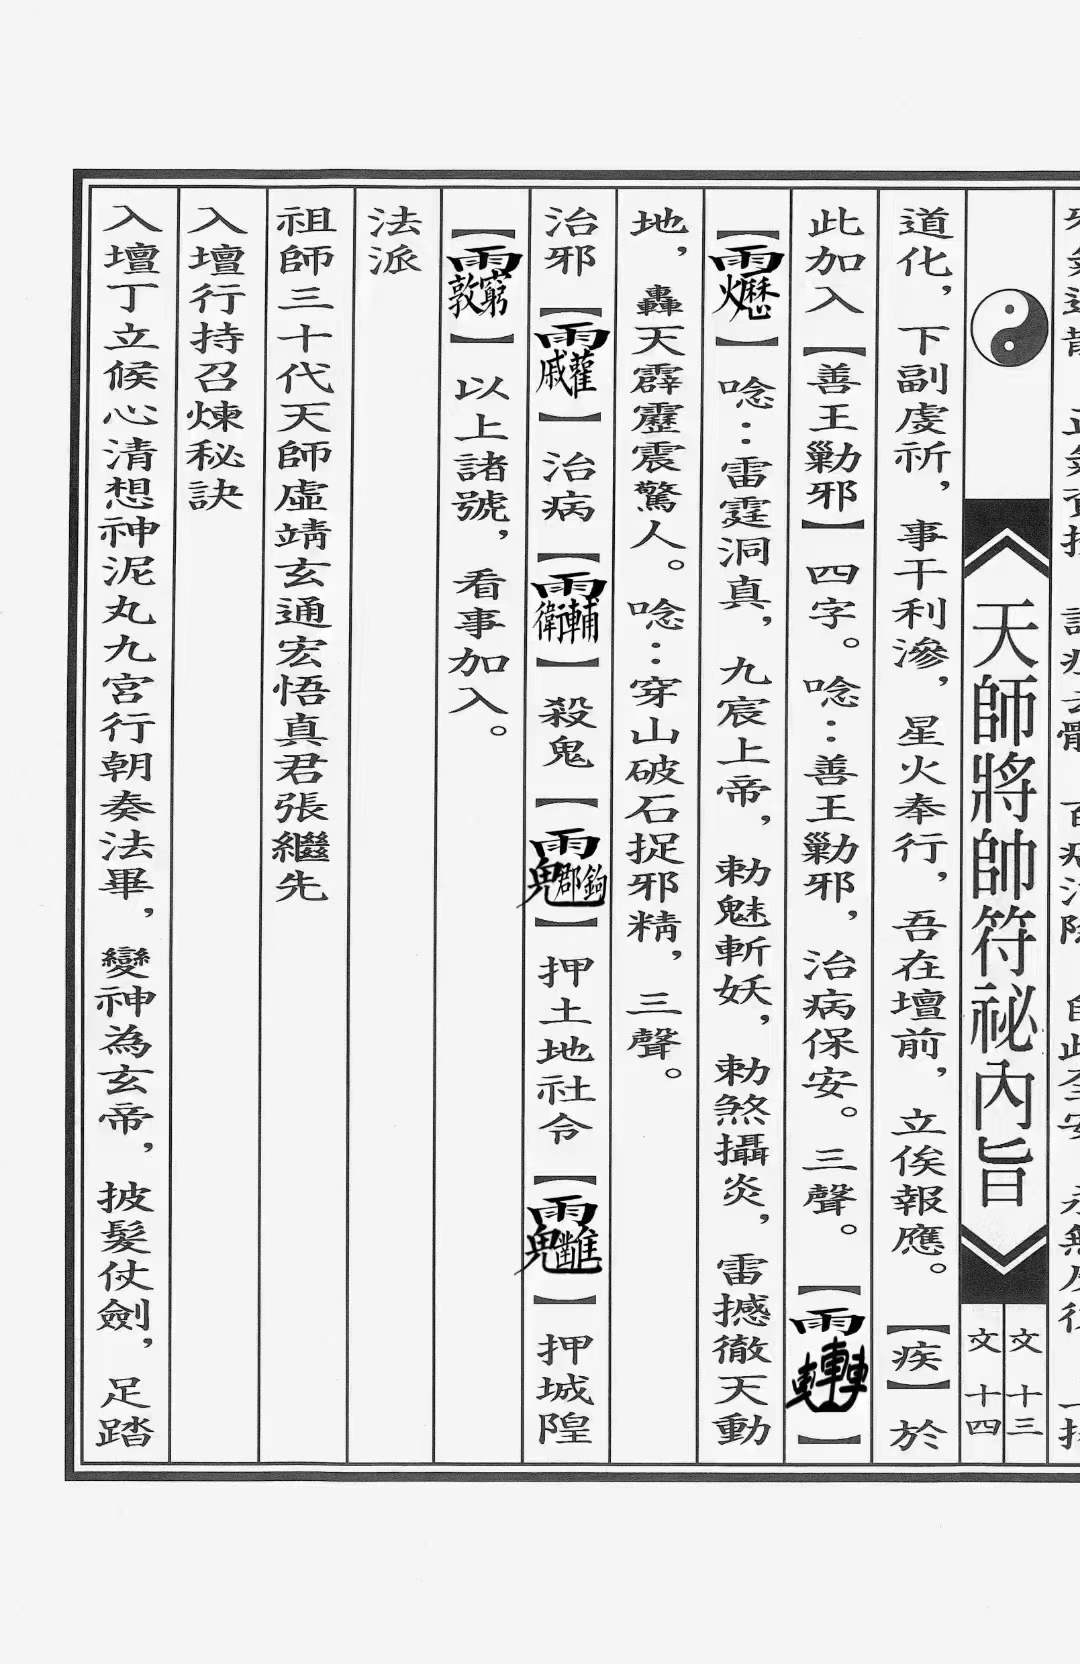 天師將帥符祕內旨
文 十三
文 十四
道化，下副虔祈，事干利滲，星火奉行，吾在壇前，立俟報應。【疾】於
此加入【善王勦邪】四字。唸：善王勦邪，治病保安。三聲。【
】唸：雷霆洞真，九宸上帝，勅魅斬妖，勅煞攝炎，雷撼徹天動
地，轟天霹靂震驚人。唸：穿山破石捉邪精，三聲。
治邪【】治病【】殺鬼【】押土地社令【】押城隍
【】以上諸號，看事加入。
法派
祖師三十代天師虛靖玄通宏悟真君張繼先
入壇行持召煉秘訣
入壇丁立候心清想神泥丸九宮行朝奏法畢，變神為玄帝，披髮仗劍，足踏